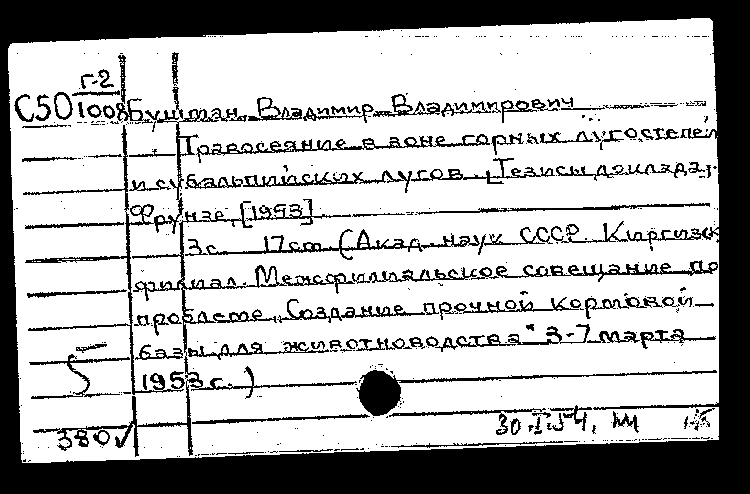 Г-2
С50 1008 Бушман, Владимир Владимирович
Травосеяние в зоне горных лугостепей
и субальпийских лугов. [Тезисы доклада].
Фрунзе, [1953].
3с. 17см. (Акад. наук СССР. Киргизск
филиал. Межфилиальское совещание по
проблеме „Создание прочной кормовой
базы для животноводства" 3-7 марта
5
1953 г.)
380✓
30.I.54.